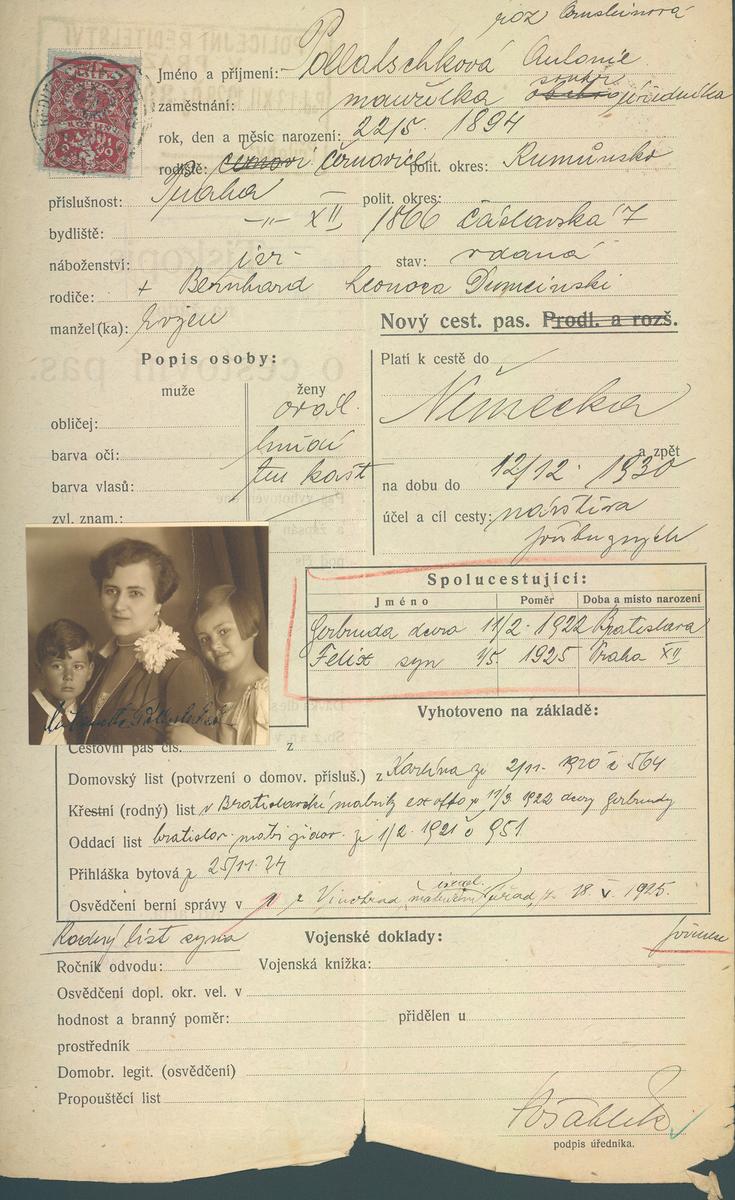 roz
Jméno a příjmení: Pollatschková Antonie
zaměstnání: manželka soukr. úředníka
rok, den a měsíc narození: 22/5. 1894
rodiště: Černovice polit. okres: Rumunsko
příslušnost: Praha polit. okres:
bydliště: -"- XII 1866 Čáslavská 7
náboženství: isr. stav: vdaná
rodiče: + Bernhard Leonora
manžel(ka): Evžen
Nový cest. pas. Prodl. a rozš.
Popis osoby:
muže ženy
Platí k cestě do
Německa
a zpět
obličej: ovál.
barva očí: hnědé
barva vlasů: tm kašt
zvl. znam.:
na dobu do 12/12. 1930
účel a cíl cesty: návštěva
příbuzných
Spolucestující:
Jméno Poměr Doba a místo narození
Gertruda dcera 11/2. 1922 Bratislava
Felix syn 1/5. 1925 Praha XII
Vyhotoveno na základě:
Cestovní pas čís. z
Domovský list (potvrzení o domov. přísluš.) z Karlína ze 2/11. 1920 č 564
Křestní (rodný) list v Bratislavské matriky ex offo z 11/3 1922 dcery Gertrudy
Oddací list bratislav. matr. židov. ze 1/2. 1921 č 951
Přihláška bytová z 25/11. 24
Osvědčení berní správy v z Vinohrad, israel. matriční úřad, z 18. V. 1925.
Rodný list syna
Vojenské doklady:
Ročník odvodu: Vojenská knížka:
Osvědčení dopl. okr. vel. v
hodnost a branný poměr: přidělen u
prostředník
Domobr. legit. (osvědčení)
Propouštěcí list
podpis úředníka.